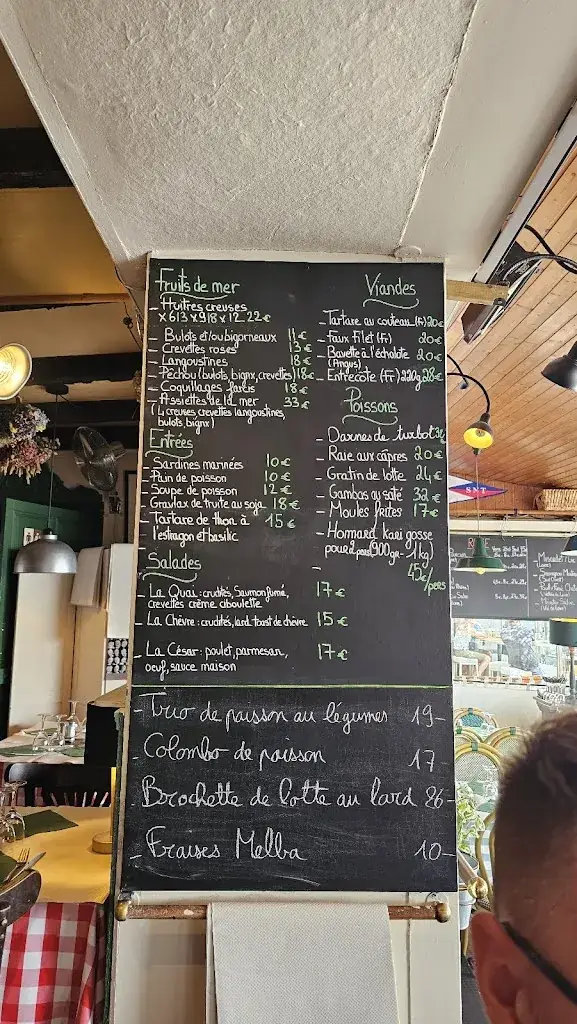 Fruits de mer
- Huîtres creuses
x6 13 x9 18 x12 22€
- Bulots et/ou bigorneaux 11€
- Crevettes roses 13€
- Langoustines 18€
- Péchou (bulots, bignx, crevettes) 18€
- Coquillages farcis 18€
- Assiettes de la mer 33€
(4 creuses, crevettes langoustines,
bulots, bignx)
Entrées
- Sardines marinées 10€
- Pain de poisson 10€
- Soupe de poisson 12€
- Gravlax de truite au soja 18€
- Tartare de thon à 15€
l'estragon et basilic
Salades
- La Quai: crudités, Saumon fumé, 17€
crevettes crème ciboulette
- La Chèvre: crudités, lard, toast de chèvre 15€
- La César: poulet, parmesan, 17€
oeuf, sauce maison
Viandes
- Tartare au couteau (Fr) 20€
- Faux Filet (Fr) 20€
- Bavette à l'échalote 20€
(Angus)
- Entrecote (Fr) 220g 28€
Poissons
- Darnes de turbot
- Raie aux câpres 20€
- Gratin de lotte 24€
- Gambas au saté 32€
- Moules frites 17€
- Homard kari gosse
pour 2 pers (900gr - 1kg)
- 45€/pers
- Trio de poisson au légumes 19-
- Colombo de poisson 17-
- Brochette de lotte au lard 26-
- Fraises Melba 10-
SNT